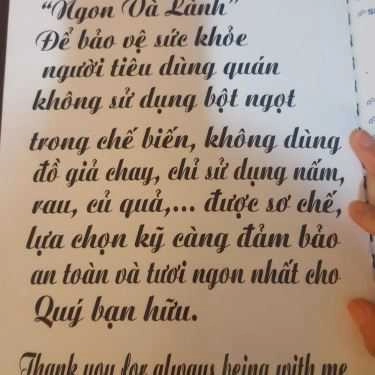 "Ngon Và Lành"
Để bảo vệ sức khỏe
người tiêu dùng quán
không sử dụng bột ngọt
trong chế biến, không dùng
đồ giả chay, chỉ sử dụng nấm,
rau, củ quả,... được sơ chế,
lựa chọn kỹ càng đảm bảo
an toàn và tươi ngon nhất cho
Quý bạn hữu.
Thank you for always being with me